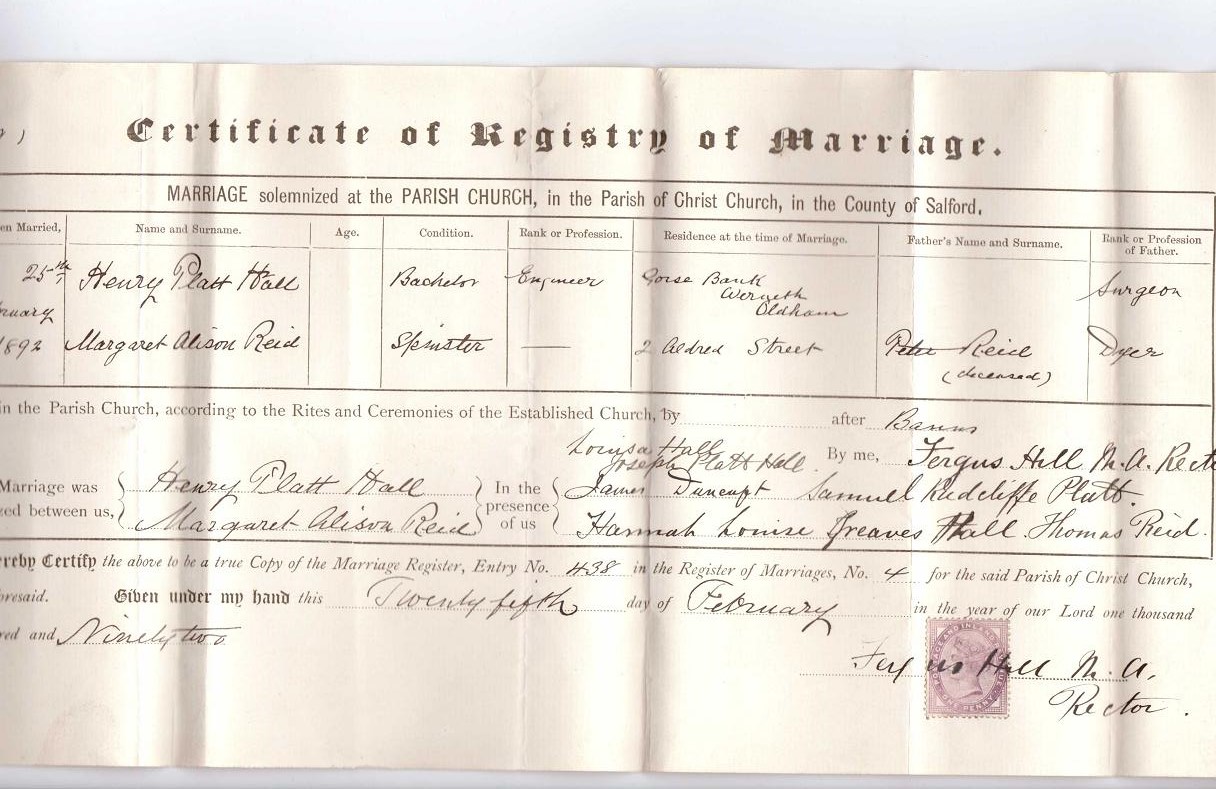 Certificate of Registry of Marriage.
MARRIAGE solemnized at the PARISH CHURCH, in the Parish of Christ Church, in the County of Salford.
en Married, Name and Surname. Age. Condition. Rank or Profession. Residence at the time of Marriage. Father's Name and Surname. Rank or Profession of Father.
25th Henry Platt Hall Bachelor Engineer Gorse Bank Werneth Oldham Surgeon
ruary
1892 Margaret Alison Reid Spinster — 2 Aldred Street Peter Reid (deceased) Dyer
in the Parish Church, according to the Rites and Ceremonies of the Established Church, by after Banns
Louisa Hall
Joseph Platt Hall By me, Fergus Hill M.A. Recto
Marriage was Henry Platt Hall In the James Samuel Radcliffe Platt.
zed between us, Margaret Alison Reid presence of us Hannah Louise Greaves Hall. Thomas Reid.
reby Certify the above to be a true Copy of the Marriage Register, Entry No. 438 in the Register of Marriages, No. 4 for the said Parish of Christ Church,
oresaid. Given under my hand this Twenty fifth day of February in the year of our Lord one thousand
red and Ninety two
Fergus Hill M.A.
Rector.
ONE PENNY